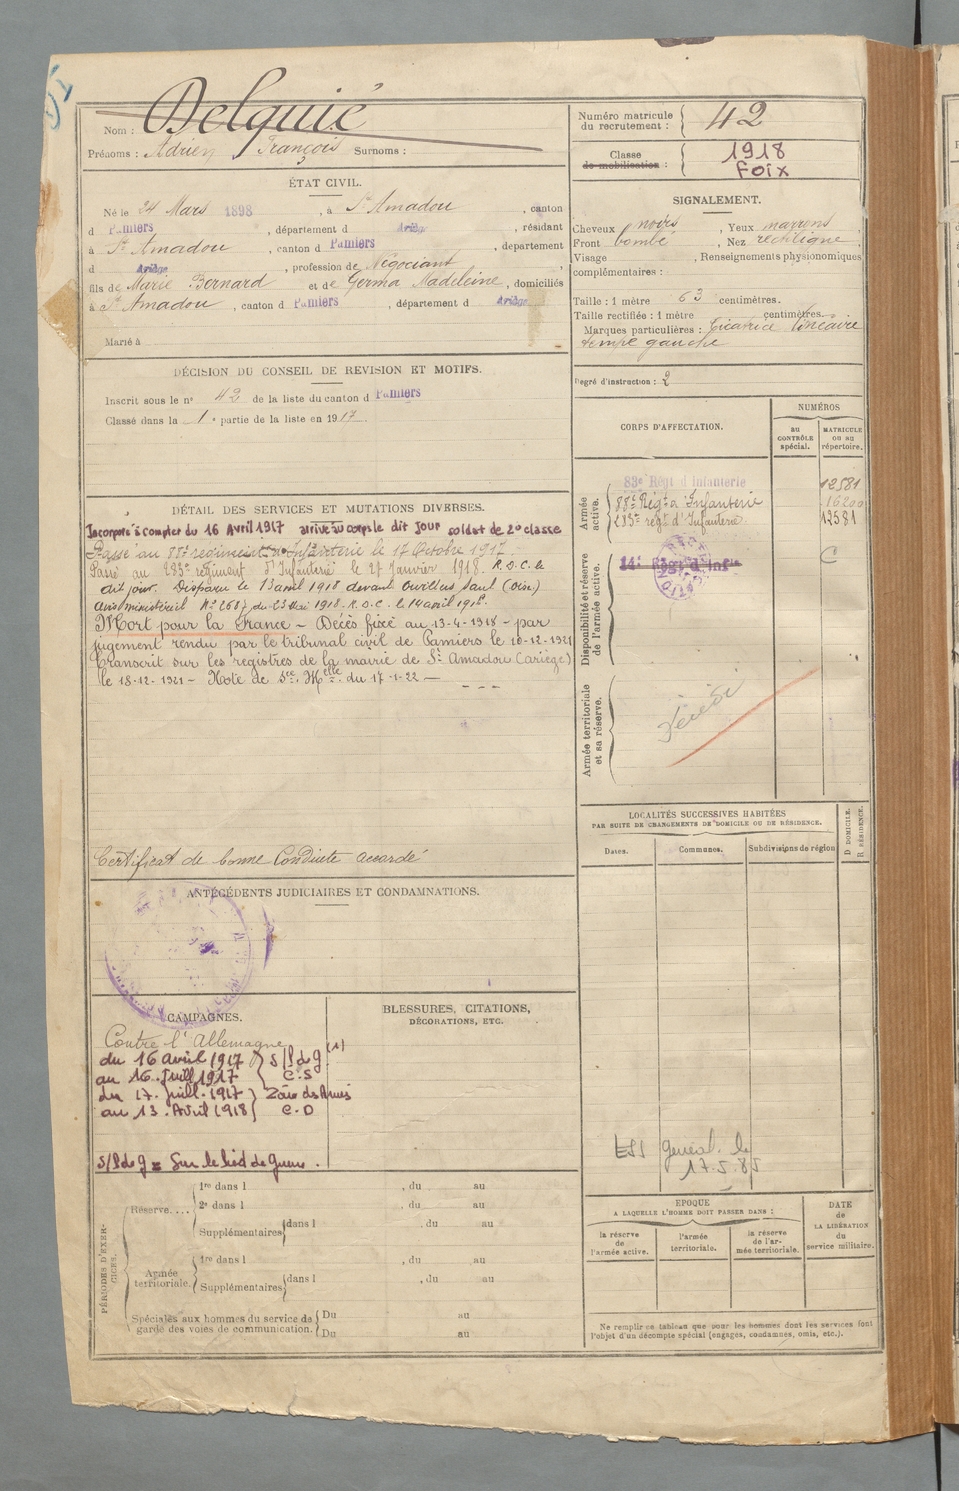 Nom : Delquié
Prénoms : Adrien François Surnoms :
Numéro matricule du recrutement : 42
Classe de mobilisation : 1918 Foix
ÉTAT CIVIL.
Né le 24 Mars 1898, à St Amadou, canton
d Pamiers, département d Ariège, résidant
à St Amadou, canton d Pamiers, département
d Ariège, profession de Négociant,
fils de Marie Bernard et de Germa Madeleine, domiciliés
à St Amadou, canton d Pamiers, département d Ariège
Marié à
SIGNALEMENT.
Cheveux noirs, Yeux marrons
Front bombé, Nez rectiligne
Visage , Renseignements physionomiques
complémentaires :
Taille : 1 mètre 63 centimètres.
Taille rectifiée : 1 mètre centimètres.
Marques particulières : Cicatrice linéaire
tempe gauche
Degré d'instruction : 2
DÉCISION DU CONSEIL DE REVISION ET MOTIFS.
Inscrit sous le no 42 de la liste du canton d Pamiers
Classé dans la 1e partie de la liste en 1917.
CORPS D'AFFECTATION.
NUMÉROS
AU CONTRÔLE spécial.
MATRICULE OU AU répertoire.
Armée active.
83e Régt d'Infanterie 12581
88e Régt d'Infanterie 16200
283e régt d'Infanterie 13581
Disponibilité et réserve de l'armée active.
14e Régt d'Infie C
Armée territoriale et sa réserve.
DÉTAIL DES SERVICES ET MUTATIONS DIVERSES.
Incorporé à compter du 16 Avril 1917 arrivé au corps le dit jour soldat de 2e classe
Passé au 88e régiment d'Infanterie le 17 Octobre 1917.
Passé au 283e régiment d'Infanterie le 27 Janvier 1918. R.D.C. le
dit jour. Disparu le 13 avril 1918 devant (Oise)
avis ministériel du 23 Mai 1918. R.D.C. le 14 avril 1918.
Mort pour la France – Décès fixé au 13-4-1918 – par
jugement rendu par le tribunal civil de Pamiers le 10-12-1921
transcrit sur les registres de la mairie de St Amadou (Ariège)
le 18-12-1921 – Note de du 17-1-22 –
Certificat de bonne Conduite accordé
LOCALITÉS SUCCESSIVES HABITÉES
PAR SUITE DE CHANGEMENTS DE DOMICILE OU DE RÉSIDENCE.
Dates. Communes. Subdivisions de région
D DOMICILE. R RÉSIDENCE.
ANTÉCÉDENTS JUDICIAIRES ET CONDAMNATIONS.
CAMPAGNES.
Contre l'Allemagne
du 16 avril 1917 } S/P de g (1)
au 16 Juill 1917 } C.S
du 17. Juill. 1917 } Zône des Armées
au 13. Avril 1918 } C.D
S/P de g = Sur le pied de guerre.
BLESSURES, CITATIONS,
DÉCORATIONS, ETC.
17.5.85
PÉRIODES D'EXERCICES.
Réserve....
1re dans l , du au
2e dans l , du au
Supplémentaires dans l , du au
Armée territoriale.
1re dans l , du au
Supplémentaires dans l , du au
Spéciales aux hommes du service de garde des voies de communication.
Du au
Du au
EPOQUE
A LAQUELLE L'HOMME DOIT PASSER DANS :
la réserve de l'armée active.
l'armée territoriale.
la réserve de l'armée territoriale.
DATE de LA LIBÉRATION du service militaire.
Ne remplir ce tableau que pour les hommes dont les services font
l'objet d'un décompte spécial (engagés, condamnés, omis, etc.).